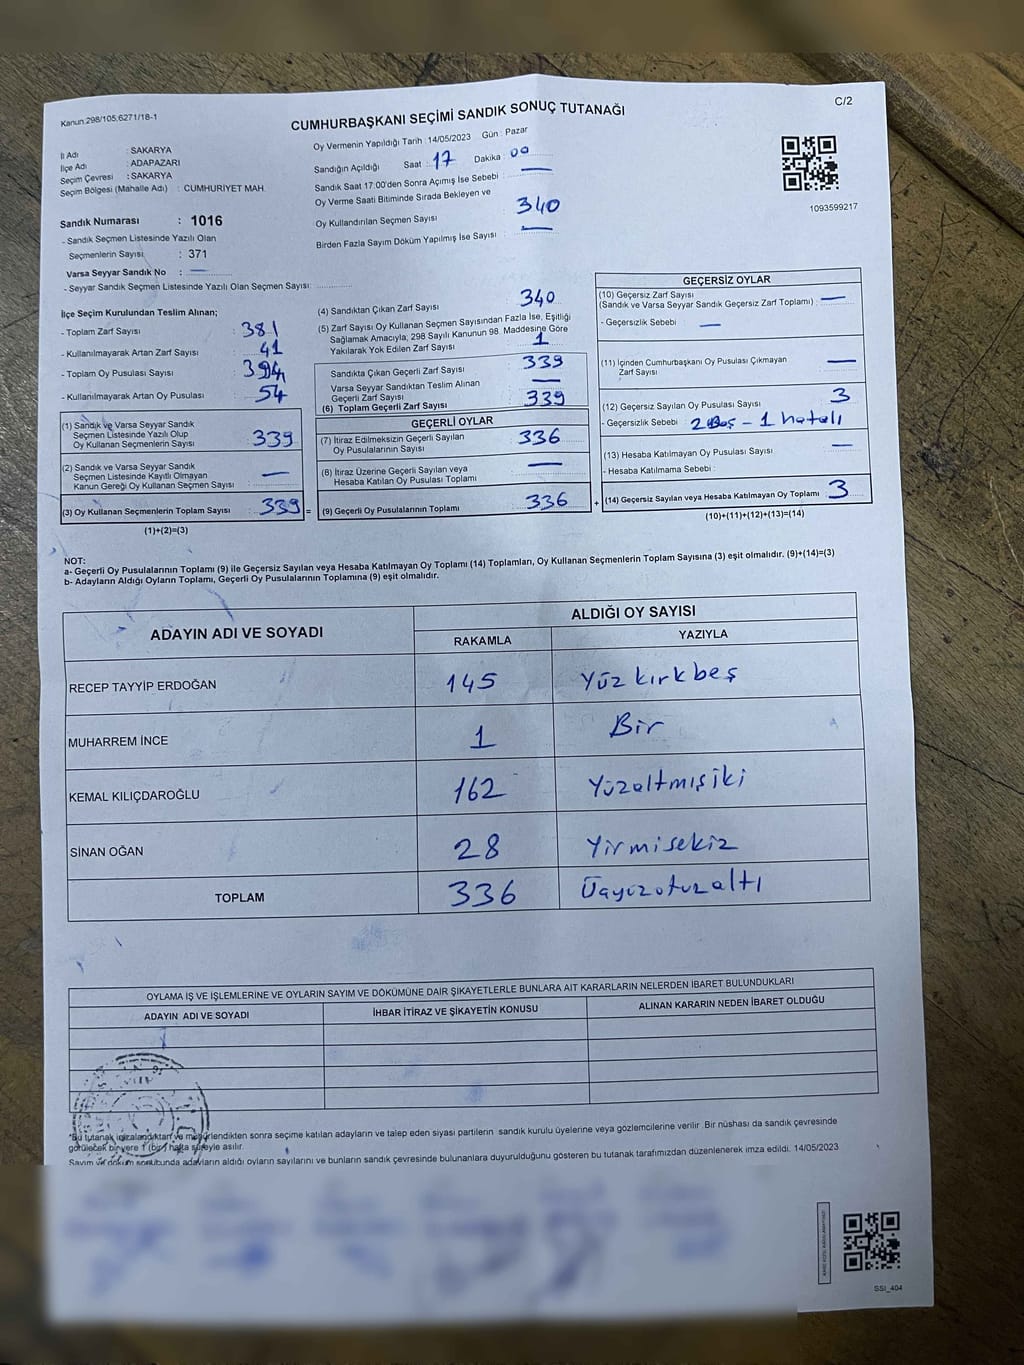 Kanun:298/105;6271/18-1
C/2
CUMHURBAŞKANI SEÇİMİ SANDIK SONUÇ TUTANAĞI
İl Adı : SAKARYA
İlçe Adı : ADAPAZARI
Seçim Çevresi : SAKARYA
Seçim Bölgesi (Mahalle Adı) : CUMHURİYET MAH.
Sandık Numarası : 1016
- Sandık Seçmen Listesinde Yazılı Olan
Seçmenlerin Sayısı : 371
Varsa Seyyar Sandık No : —
- Seyyar Sandık Seçmen Listesinde Yazılı Olan Seçmen Sayısı:
Oy Vermenin Yapıldığı Tarih : 14/05/2023 Gün : Pazar
Sandığın Açıldığı Saat : 17 Dakika : 00
Sandık Saat 17:00'den Sonra Açımış İse Sebebi : —
Oy Verme Saati Bitiminde Sırada Bekleyen ve
Oy Kullandırılan Seçmen Sayısı : 340
Birden Fazla Sayım Döküm Yapılmış İse Sayısı : —
1093599217
İlçe Seçim Kurulundan Teslim Alınan;
- Toplam Zarf Sayısı : 381
- Kullanılmayarak Artan Zarf Sayısı : 41
- Toplam Oy Pusulası Sayısı : 394
- Kullanılmayarak Artan Oy Pusulası : 54
(1) Sandık ve Varsa Seyyar Sandık
Seçmen Listesinde Yazılı Olup
Oy Kullanan Seçmenlerin Sayısı : 339
(2) Sandık ve Varsa Seyyar Sandık
Seçmen Listesinde Kayıtlı Olmayan
Kanun Gereği Oy Kullanan Seçmen Sayısı : —
(3) Oy Kullanan Seçmenlerin Toplam Sayısı : 339 =
(1)+(2)=(3)
(4) Sandıktan Çıkan Zarf Sayısı : 340
(5) Zarf Sayısı Oy Kullanan Seçmen Sayısından Fazla İse, Eşitliği
Sağlamak Amacıyla; 298 Sayılı Kanunun 98. Maddesine Göre
Yakılarak Yok Edilen Zarf Sayısı : 1
Sandıkta Çıkan Geçerli Zarf Sayısı : 339
Varsa Seyyar Sandıktan Teslim Alınan
Geçerli Zarf Sayısı : —
(6) Toplam Geçerli Zarf Sayısı : 339
GEÇERLİ OYLAR
(7) İtiraz Edilmeksizin Geçerli Sayılan
Oy Pusulalarının Sayısı : 336
(8) İtiraz Üzerine Geçerli Sayılan veya
Hesaba Katılan Oy Pusulası Toplamı : —
(9) Geçerli Oy Pusulalarının Toplamı : 336 +
GEÇERSİZ OYLAR
(10) Geçersiz Zarf Sayısı
(Sandık ve Varsa Seyyar Sandık Geçersiz Zarf Toplamı) : —
- Geçersizlik Sebebi : —
(11) İçinden Cumhurbaşkanı Oy Pusulası Çıkmayan
Zarf Sayısı : —
(12) Geçersiz Sayılan Oy Pusulası Sayısı : 3
- Geçersizlik Sebebi : 2 Boş - 1 hatalı
(13) Hesaba Katılmayan Oy Pusulası Sayısı : —
- Hesaba Katılmama Sebebi :
(14) Geçersiz Sayılan veya Hesaba Katılmayan Oy Toplamı : 3
(10)+(11)+(12)+(13)=(14)
NOT:
a- Geçerli Oy Pusulalarının Toplamı (9) ile Geçersiz Sayılan veya Hesaba Katılmayan Oy Toplamı (14) Toplamları, Oy Kullanan Seçmenlerin Toplam Sayısına (3) eşit olmalıdır. (9)+(14)=(3)
b- Adayların Aldığı Oyların Toplamı, Geçerli Oy Pusulalarının Toplamına (9) eşit olmalıdır.
ADAYIN ADI VE SOYADI
ALDIĞI OY SAYISI
RAKAMLA YAZIYLA
RECEP TAYYİP ERDOĞAN 145 Yüz kırk beş
MUHARREM İNCE 1 Bir
KEMAL KILIÇDAROĞLU 162 Yüzaltmışiki
SİNAN OĞAN 28 Yirmisekiz
TOPLAM 336 Üçyüzotuzaltı
OYLAMA İŞ VE İŞLEMLERİNE VE OYLARIN SAYIM VE DÖKÜMÜNE DAİR ŞİKAYETLERLE BUNLARA AİT KARARLARIN NELERDEN İBARET BULUNDUKLARI
ADAYIN ADI VE SOYADI İHBAR İTİRAZ VE ŞİKAYETİN KONUSU ALINAN KARARIN NEDEN İBARET OLDUĞU
*Bu tutanak imzalandıktan ve mühürlendikten sonra seçime katılan adayların ve talep eden siyasi partilerin sandık kurulu üyelerine veya gözlemcilerine verilir .Bir nüshası da sandık çevresinde
görülecek bir yere 1 (bir) hafta süreyle asılır.
Sayım ve döküm sonucunda adayların aldığı oyların sayılarını ve bunların sandık çevresinde bulunanlara duyurulduğunu gösteren bu tutanak tarafımızdan düzenlenerek imza edildi. 14/05/2023
SSI_404